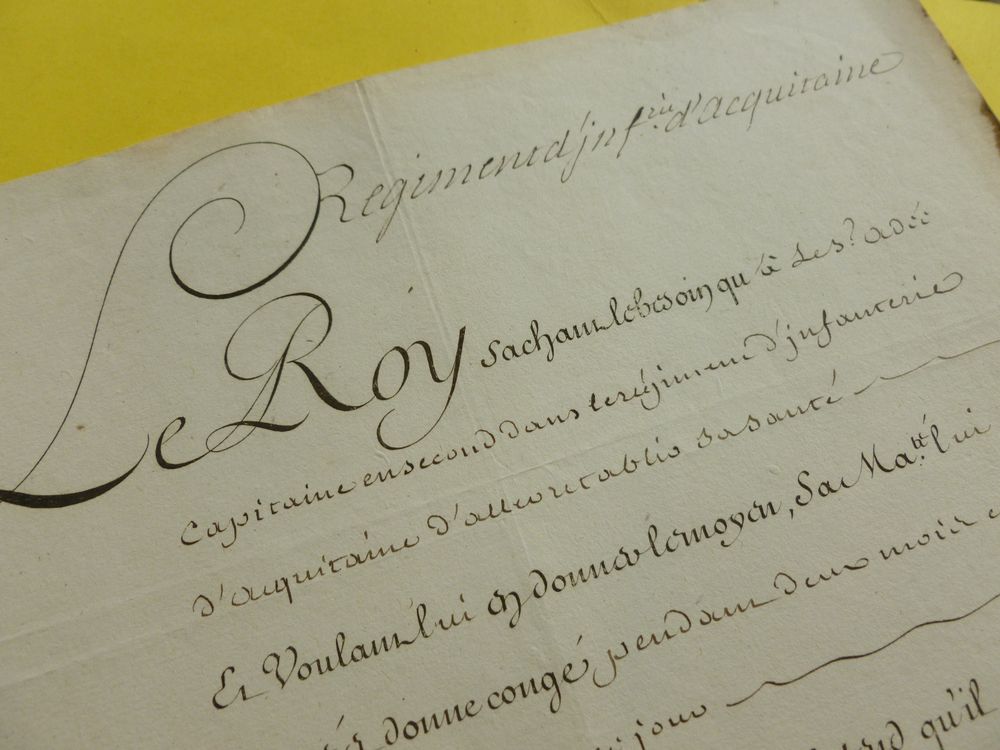 Regiment d'inf.rie d'acquitaine
Le Roy sachant le besoin qu'à le Sr.
capitaine en second dans le régiment d'infanterie
d'acquitaine d'aller retablir sa santé
Et Voulant lui en donner le moyen, Sa Ma.té lui
donne congé pendant deux mois
jour
qu'il